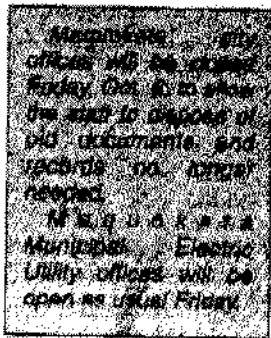 Maquoketa city
offices will be closed
Friday, Oct. 10 to allow
the staff to dispose of
old documents and
records no longer
needed.
Maquoketa
Municipal Electric
Utility offices will be
open as usual Friday.